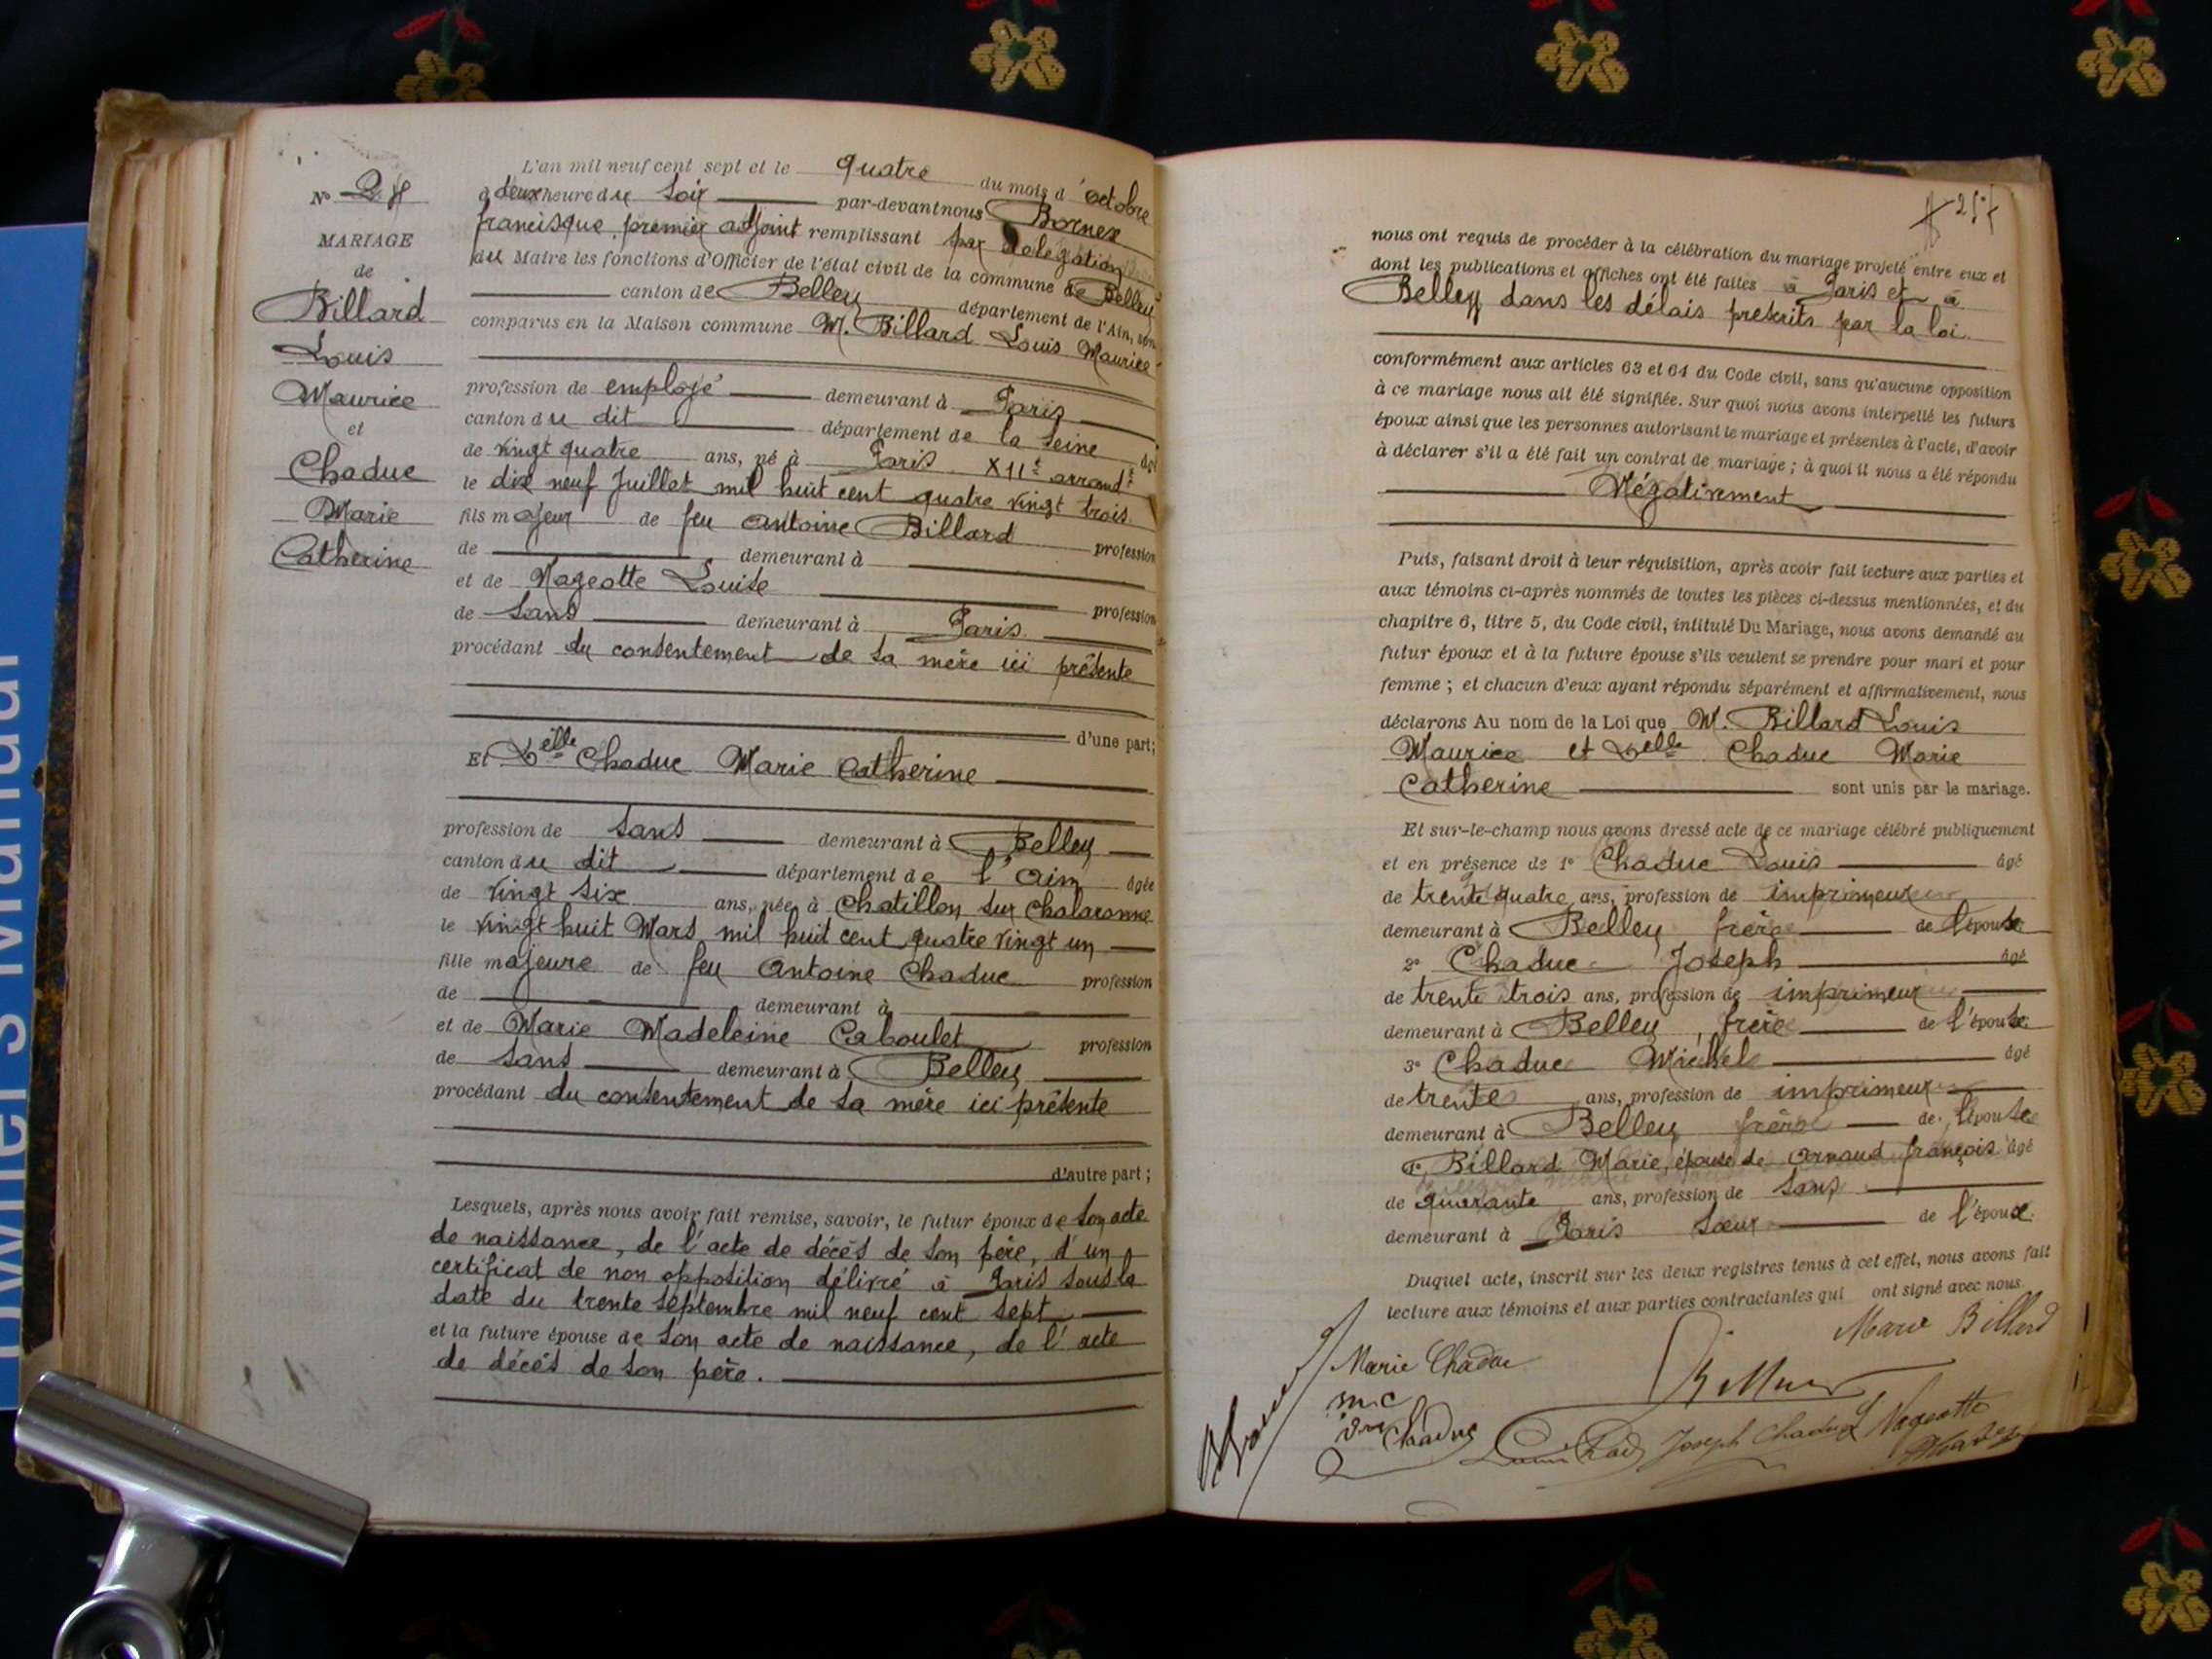 Owner's Manual
N° 28
MARIAGE
de
Billard
Louis
Maurice
et
Chaduc
Marie
Catherine
L'an mil neuf cent sept et le quatre du mois d'octobre
à deux heure du soir par-devant nous Bornex
francisque, premier adjoint remplissant par délégation
du Maire les fonctions d'Officier de l'état civil de la commune de Belley
canton de Belley département de l'Ain, son
comparus en la Maison commune M. Billard Louis Maurice
profession de employé demeurant à Paris
canton du dit département de la Seine âgé
de vingt quatre ans, né à Paris XIIe arrondt
le dix neuf Juillet mil huit cent quatre vingt trois
fils majeur de feu Antoine Billard profession
de demeurant à
et de Nageotte Louise profession
de sans demeurant à Paris
procédant du consentement de sa mère ici présente
d'une part;
Et Delle Chaduc Marie Catherine
profession de sans demeurant à Belley
canton du dit département de l'Ain âgée
de vingt six ans, née à Chatillon sur Chalaronne
le vingt huit Mars mil huit cent quatre vingt un
fille majeure de feu Antoine Chaduc profession
de demeurant à
et de Marie Madeleine Caboulet profession
de sans demeurant à Belley
procédant du consentement de sa mère ici présente
d'autre part;
Lesquels, après nous avoir fait remise, savoir, le futur époux de son acte
de naissance, de l'acte de décès de son père, d'un
certificat de non opposition délivré à Paris sous la
date du trente septembre mil neuf cent sept
et la future épouse de son acte de naissance, de l'acte
de décès de son père.
nous ont requis de procéder à la célébration du mariage projeté entre eux et
dont les publications et affiches ont été faites à Paris et à
Belley dans les délais prescrits par la loi
conformément aux articles 63 et 64 du Code civil, sans qu'aucune opposition
à ce mariage nous ait été signifiée. Sur quoi nous avons interpellé les futurs
époux ainsi que les personnes autorisant le mariage et présentes à l'acte, d'avoir
à déclarer s'il a été fait un contrat de mariage; à quoi il nous a été répondu
Négativement
Puis, faisant droit à leur réquisition, après avoir fait lecture aux parties et
aux témoins ci-après nommés de toutes les pièces ci-dessus mentionnées, et du
chapitre 6, titre 5, du Code civil, intitulé Du Mariage, nous avons demandé au
futur époux et à la future épouse s'ils veulent se prendre pour mari et pour
femme; et chacun d'eux ayant répondu séparément et affirmativement, nous
déclarons Au nom de la Loi que M. Billard Louis
Maurice et Delle Chaduc Marie
Catherine sont unis par le mariage.
Et sur-le-champ nous avons dressé acte de ce mariage célébré publiquement
et en présence de 1° Chaduc Louis âgé
de trente quatre ans, profession de imprimeur
demeurant à Belley frère de l'épouse
2° Chaduc Joseph âgé
de trente trois ans, profession de imprimeur
demeurant à Belley, frère de l'épouse
3° Chaduc Michel âgé
de trente ans, profession de imprimeur
demeurant à Belley frère de l'épouse
4° Billard Marie, épouse de Arnaud françois âgé
de quarante ans, profession de sans
demeurant à Paris sœur de l'époux
Duquel acte, inscrit sur les deux registres tenus à cet effet, nous avons fait
lecture aux témoins et aux parties contractantes qui ont signé avec nous
Marie Billard
Marie Chaduc
Chaduc
Joseph Chaduc
L Nageotte